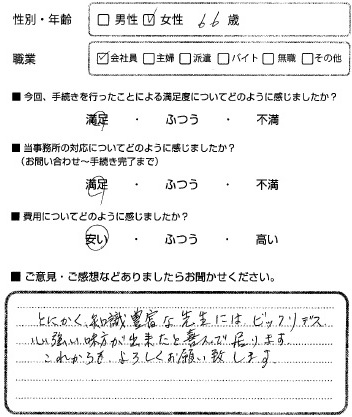 性別・年齢 □ 男性 ☑ 女性 66 歳
職業 ☑会社員 □主婦 □派遣 □バイト □無職 □その他
■ 今回、手続きを行ったことによる満足度についてどのように感じましたか？
満足 ・ ふつう ・ 不満
■ 当事務所の対応についてどのように感じましたか？
（お問い合わせ～手続き完了まで）
満足 ・ ふつう ・ 不満
■ 費用についてどのように感じましたか？
安い ・ ふつう ・ 高い
■ ご意見・ご感想などありましたらお聞かせください。
とにかく、知識豊富な先生にはビックリデス
心強い味方が出来たと喜んで居ります
これからも よろしくお願い致します